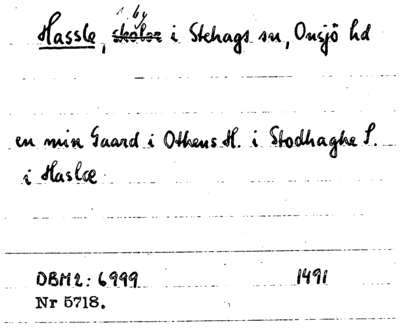 by
Hassle, skolor i Stehags sn, Onsjö hd
en min Gaard i Othens H. i Stodhaghe S.
i Haslæ
DBM2: 6999 1491
Nr 5718.